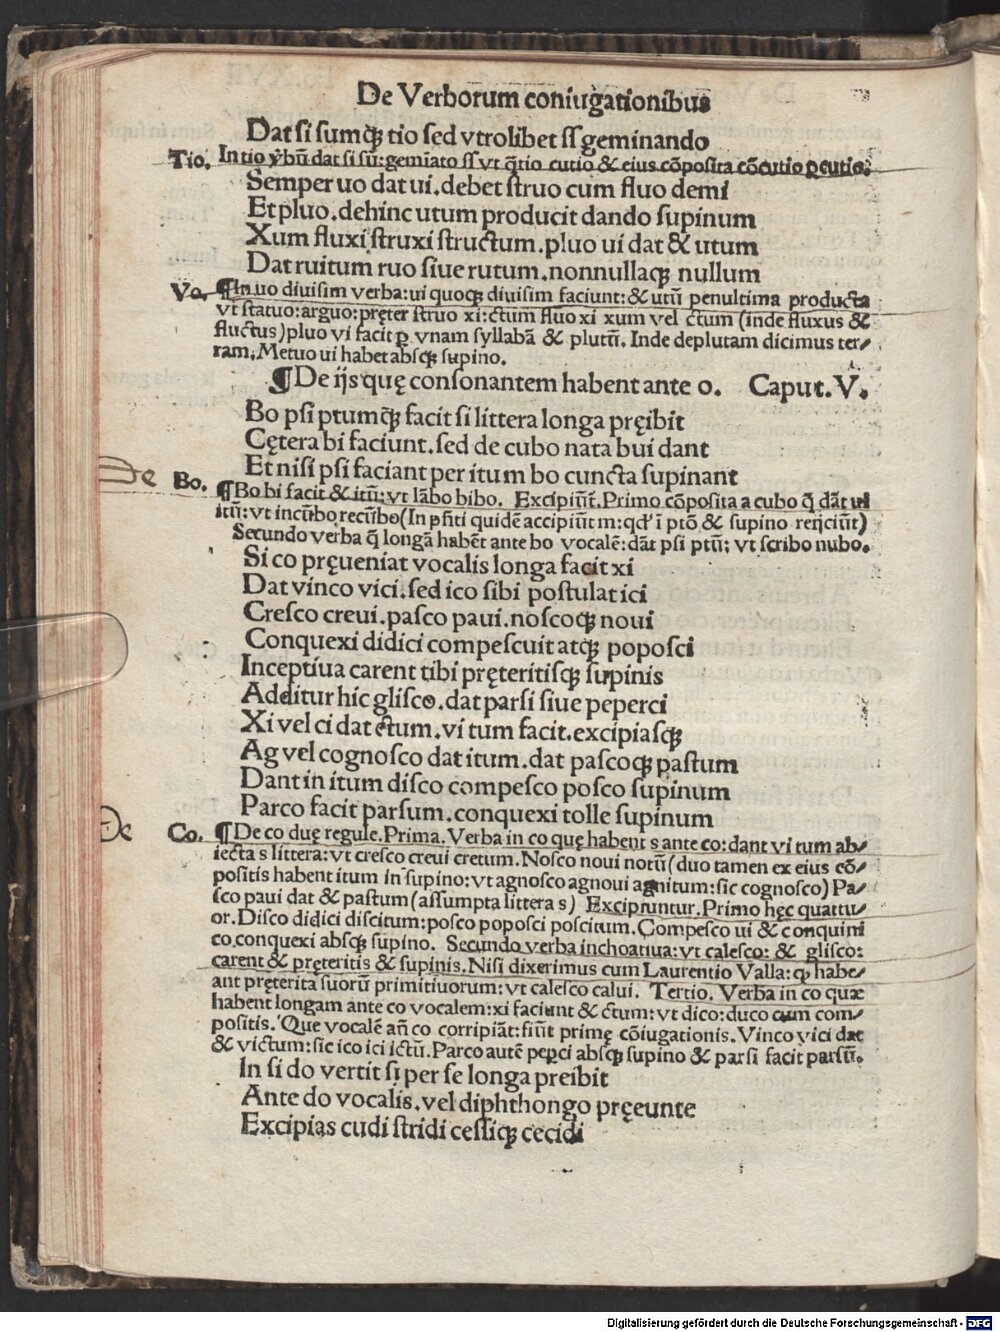 De Verborum coniugationibus
Dat si sumq; tio sed vtrolibet ss geminando
Tio. In tio ỹbũ dat si sũ: gemĩato ss vt q̃tio cutio & eius cõposita cõcutio ꝑcutio.
Semper uo dat ui. debet struo cum fluo demi
Et pluo. dehinc utum producit dando supinum
Xum fluxi struxi structum. pluo ui dat & utum
Dat ruitum ruo siue rutum. nonnullaq; nullum
Vo. ¶In uo diuisim verba: ui quoq; diuisim faciunt: & utũ penultima producta
vt statuo: arguo: pręter struo xi: ctum fluo xi xum vel ctum (inde fluxus &
fluctus) pluo vi facit ꝑ vnam syllabã & plutũ. Inde deplutam dicimus ter⸗
ram. Metuo ui habet absq; supino.
¶De ijs quę consonantem habent ante o. Caput. V.
Bo psi ptumq; facit si littera longa pręibit
Cętera bi faciunt. sed de cubo nata bui dant
Et nisi psi faciant per itum bo cuncta supinant
De
Bo. ¶Bo bi facit & itũ: vt lãbo bibo. Excipiũt̃. Primo cõposita a cubo q̃ dãt ui
itũ: vt incũbo recũbo (In p̃ſiti quidẽ accipiũt m: qd' ĩ ptõ & supino reijciũt)
Secundo verba q̃ longã habẽt ante bo vocalẽ: dãt psi ptũ: vt scribo nubo.
Si co pręueniat vocalis longa facit xi
Dat vinco vici. sed ico sibi postulat ici
Cresco creui. pasco paui. noscoq; noui
Conquexi didici compescuit atq; poposci
Inceptiua carent tibi pręteritisq; supinis
Additur hic glisco. dat parsi siue peperci
Xi vel ci dat ctum. vi tum facit. excipiasq;
Ag vel cognosco dat itum. dat pascoq; pastum
Dant in itum disco compesco posco supinum
Parco facit parsum. conquexi tolle supinum
De
Co. ¶De co duę regule. Prima. Verba in co quę habent s ante co: dant vi tum ab⸗
iecta s littera: vt cresco creui cretum. Nosco noui notũ (duo tamen ex eius cõ⸗
positis habent itum in supino: vt agnosco agnoui agnitum: sic cognosco) Pa⸗
sco paui dat & pastum (assumpta littera s) Excipiuntur. Primo hęc quattu⸗
or. Disco didici discitum: posco poposci poscitum. Compesco ui & conquini
co. conquexi absq; supino. Secundo verba inchoatiua: vt calesco: & glisco:
carent & pręteritis & supinis. Nisi dixerimus cum Laurentio Valla: ꝙ habe⸗
ant pręterita suorũ primitiuorum: vt calesco calui. Tertio. Verba in co quæ
habent longam ante co vocalem: xi faciunt & ctum: vt dico: duco cum com⸗
positis. Que vocalẽ añ co corripiãt: fiũt primę cõiugationis. Vinco vici dat
& victum: sic ico ici ictũ. Parco autẽ peꝑci absq; supino & parsi facit parsũ.
In si do vertit si per se longa preibit
Ante do vocalis. vel diphthongo pręeunte
Excipias cudi stridi cessiq; cecidi
Digitalisierung gefördert durch die Deutsche Forschungsgemeinschaft - DFG